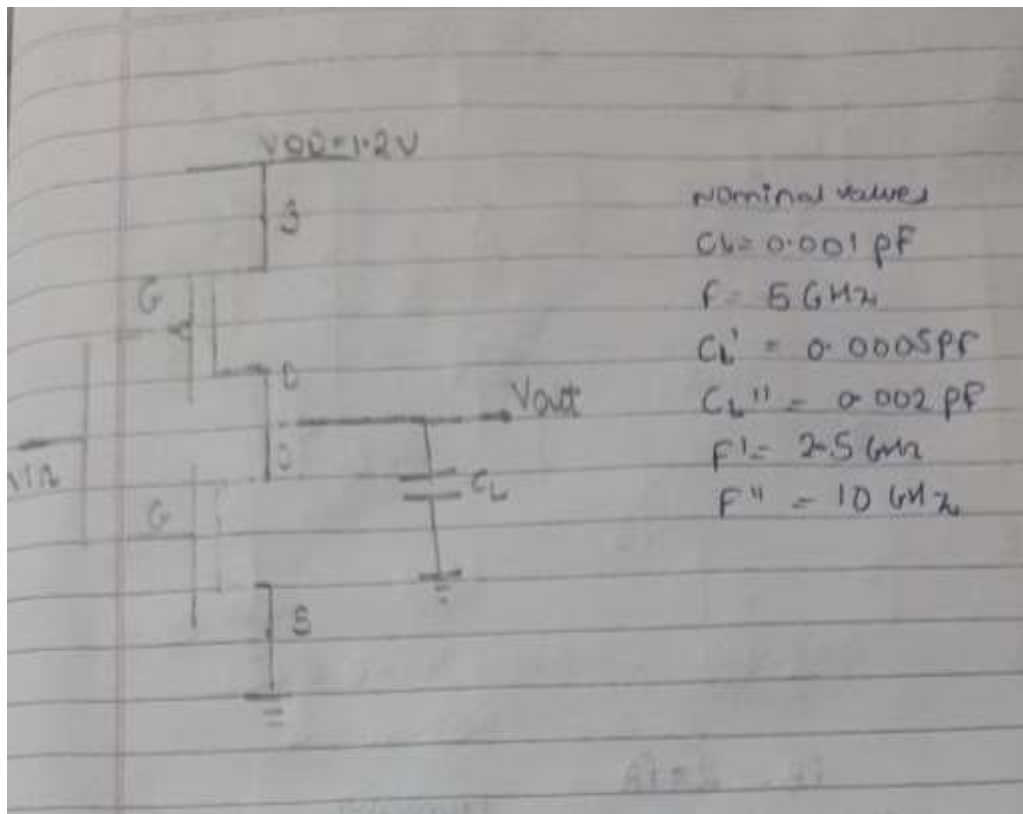 VDD=1.2V
S
G
D
Vout
D
CL
G
S
Nominal values
CL= 0.001 pF
F= 5 GHz
CL' = 0.0005pF
CL'' = 0.002 pF
F' = 2.5 GHz
F'' = 10 GHz